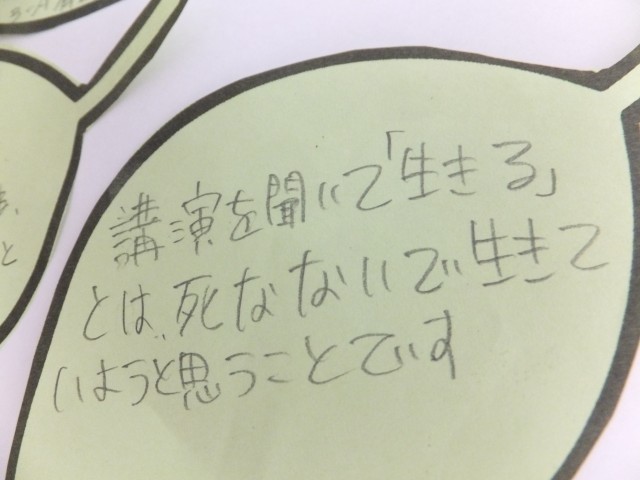 講演を聞いて「生きる」
とは、死なないで生きて
いようと思うことです